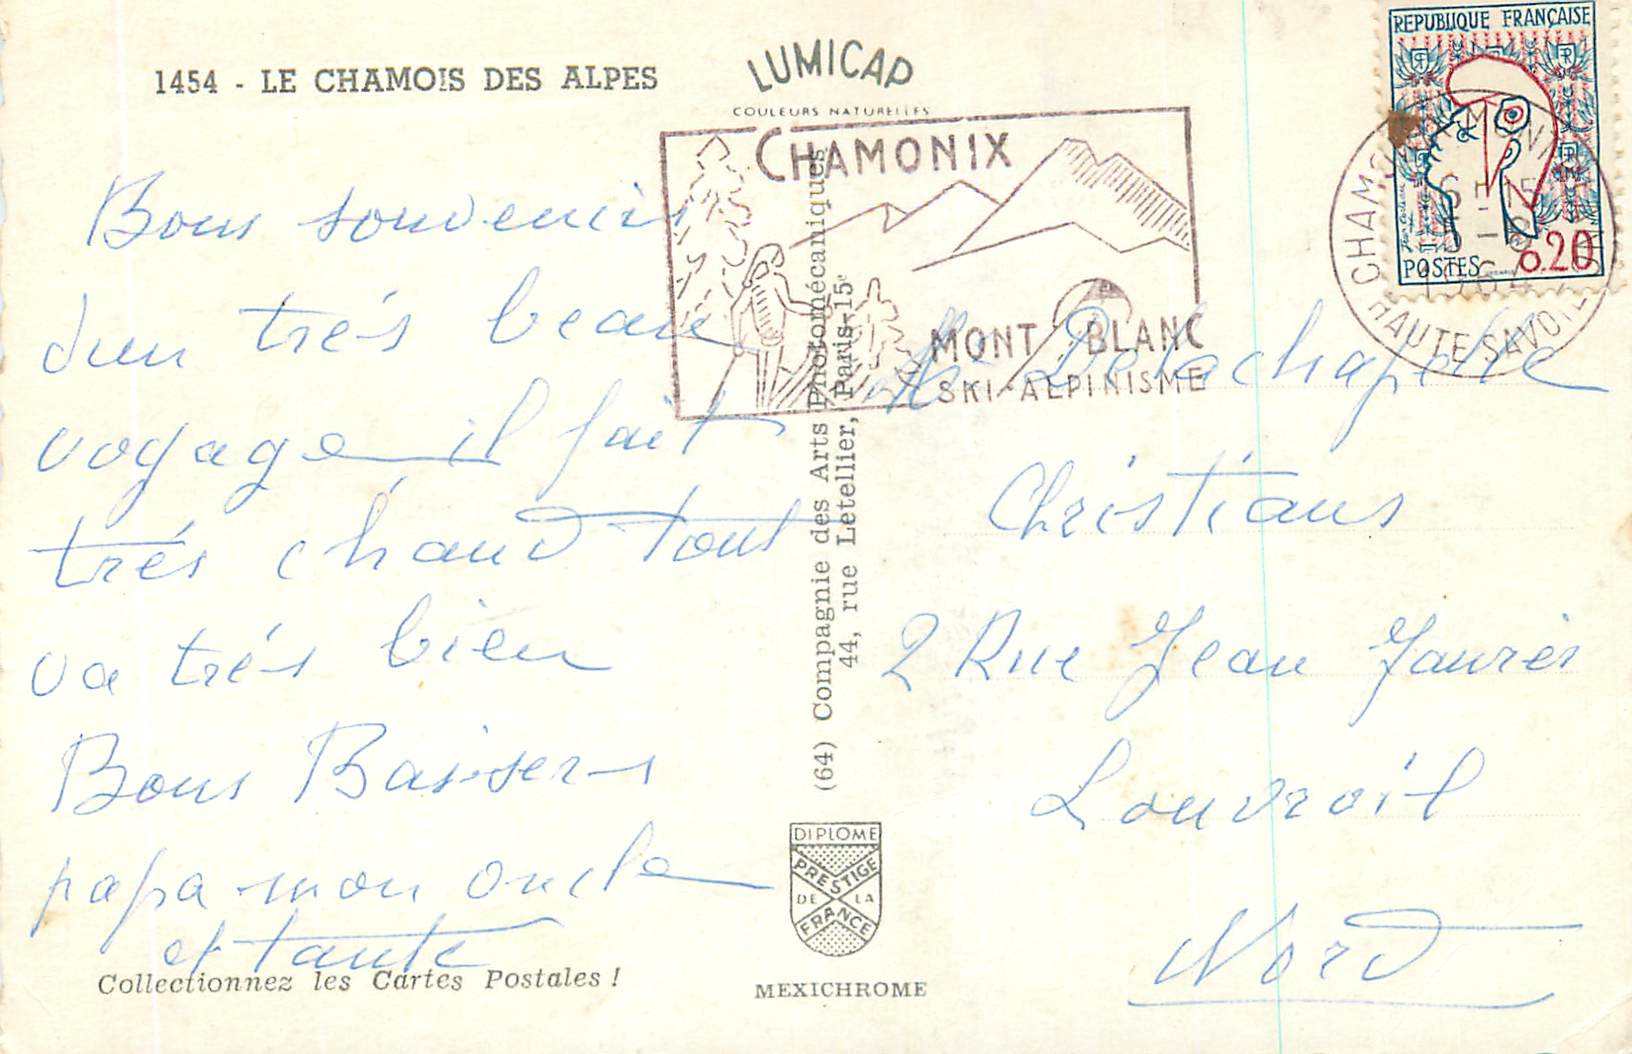 1454 - LE CHAMOIS DES ALPES
LUMICAP
COULEURS NATURELLES
CHAMONIX
MONT BLANC
SKI-ALPINISME
REPUBLIQUE FRANÇAISE
POSTES 0.20
CHAMONIX
HAUTE SAVOIE
Bons souvenirs
dun trés beau
voyage il fait
trés chaud tout
va trés bien
Bons Baisers
papa mon oncle
et tante
Collectionnez les Cartes Postales !
(64) Compagnie des Arts Photomécaniques
44, rue Letellier, Paris-15e
DIPLOME
PRESTIGE
DE LA
FRANCE
MEXICHROME
Delachapelle
Christians
2 Rue Jean Jaurés
Louvroil
Nord